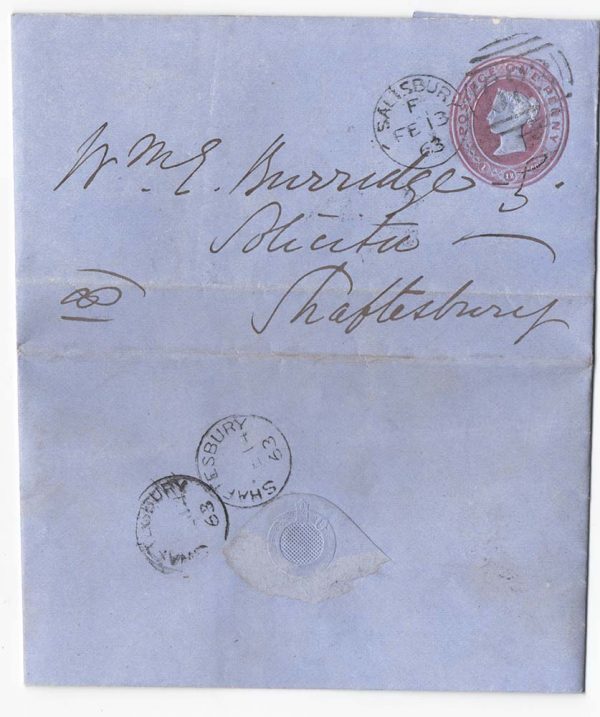 SALISBURY
F
FE 13
63
POSTAGE ONE PENNY
Wm. E. Burridge
Solicitor
Shaftesbury
SHAFTESBURY
63
SHAFTESBURY
63